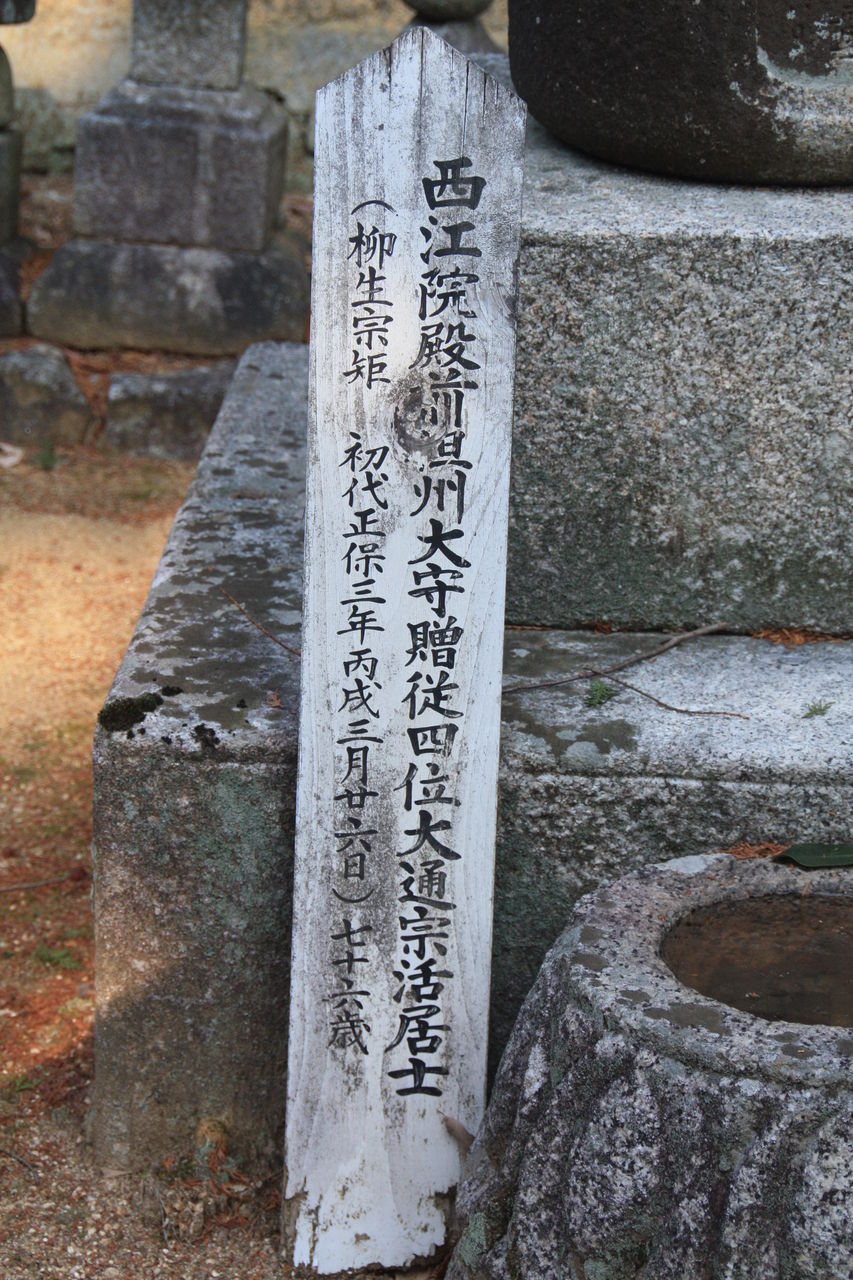 西江院殿前但州大守贈従四位大通宗活居士
（柳生宗矩　初代正保三年丙戌三月廿六日）七十六歳